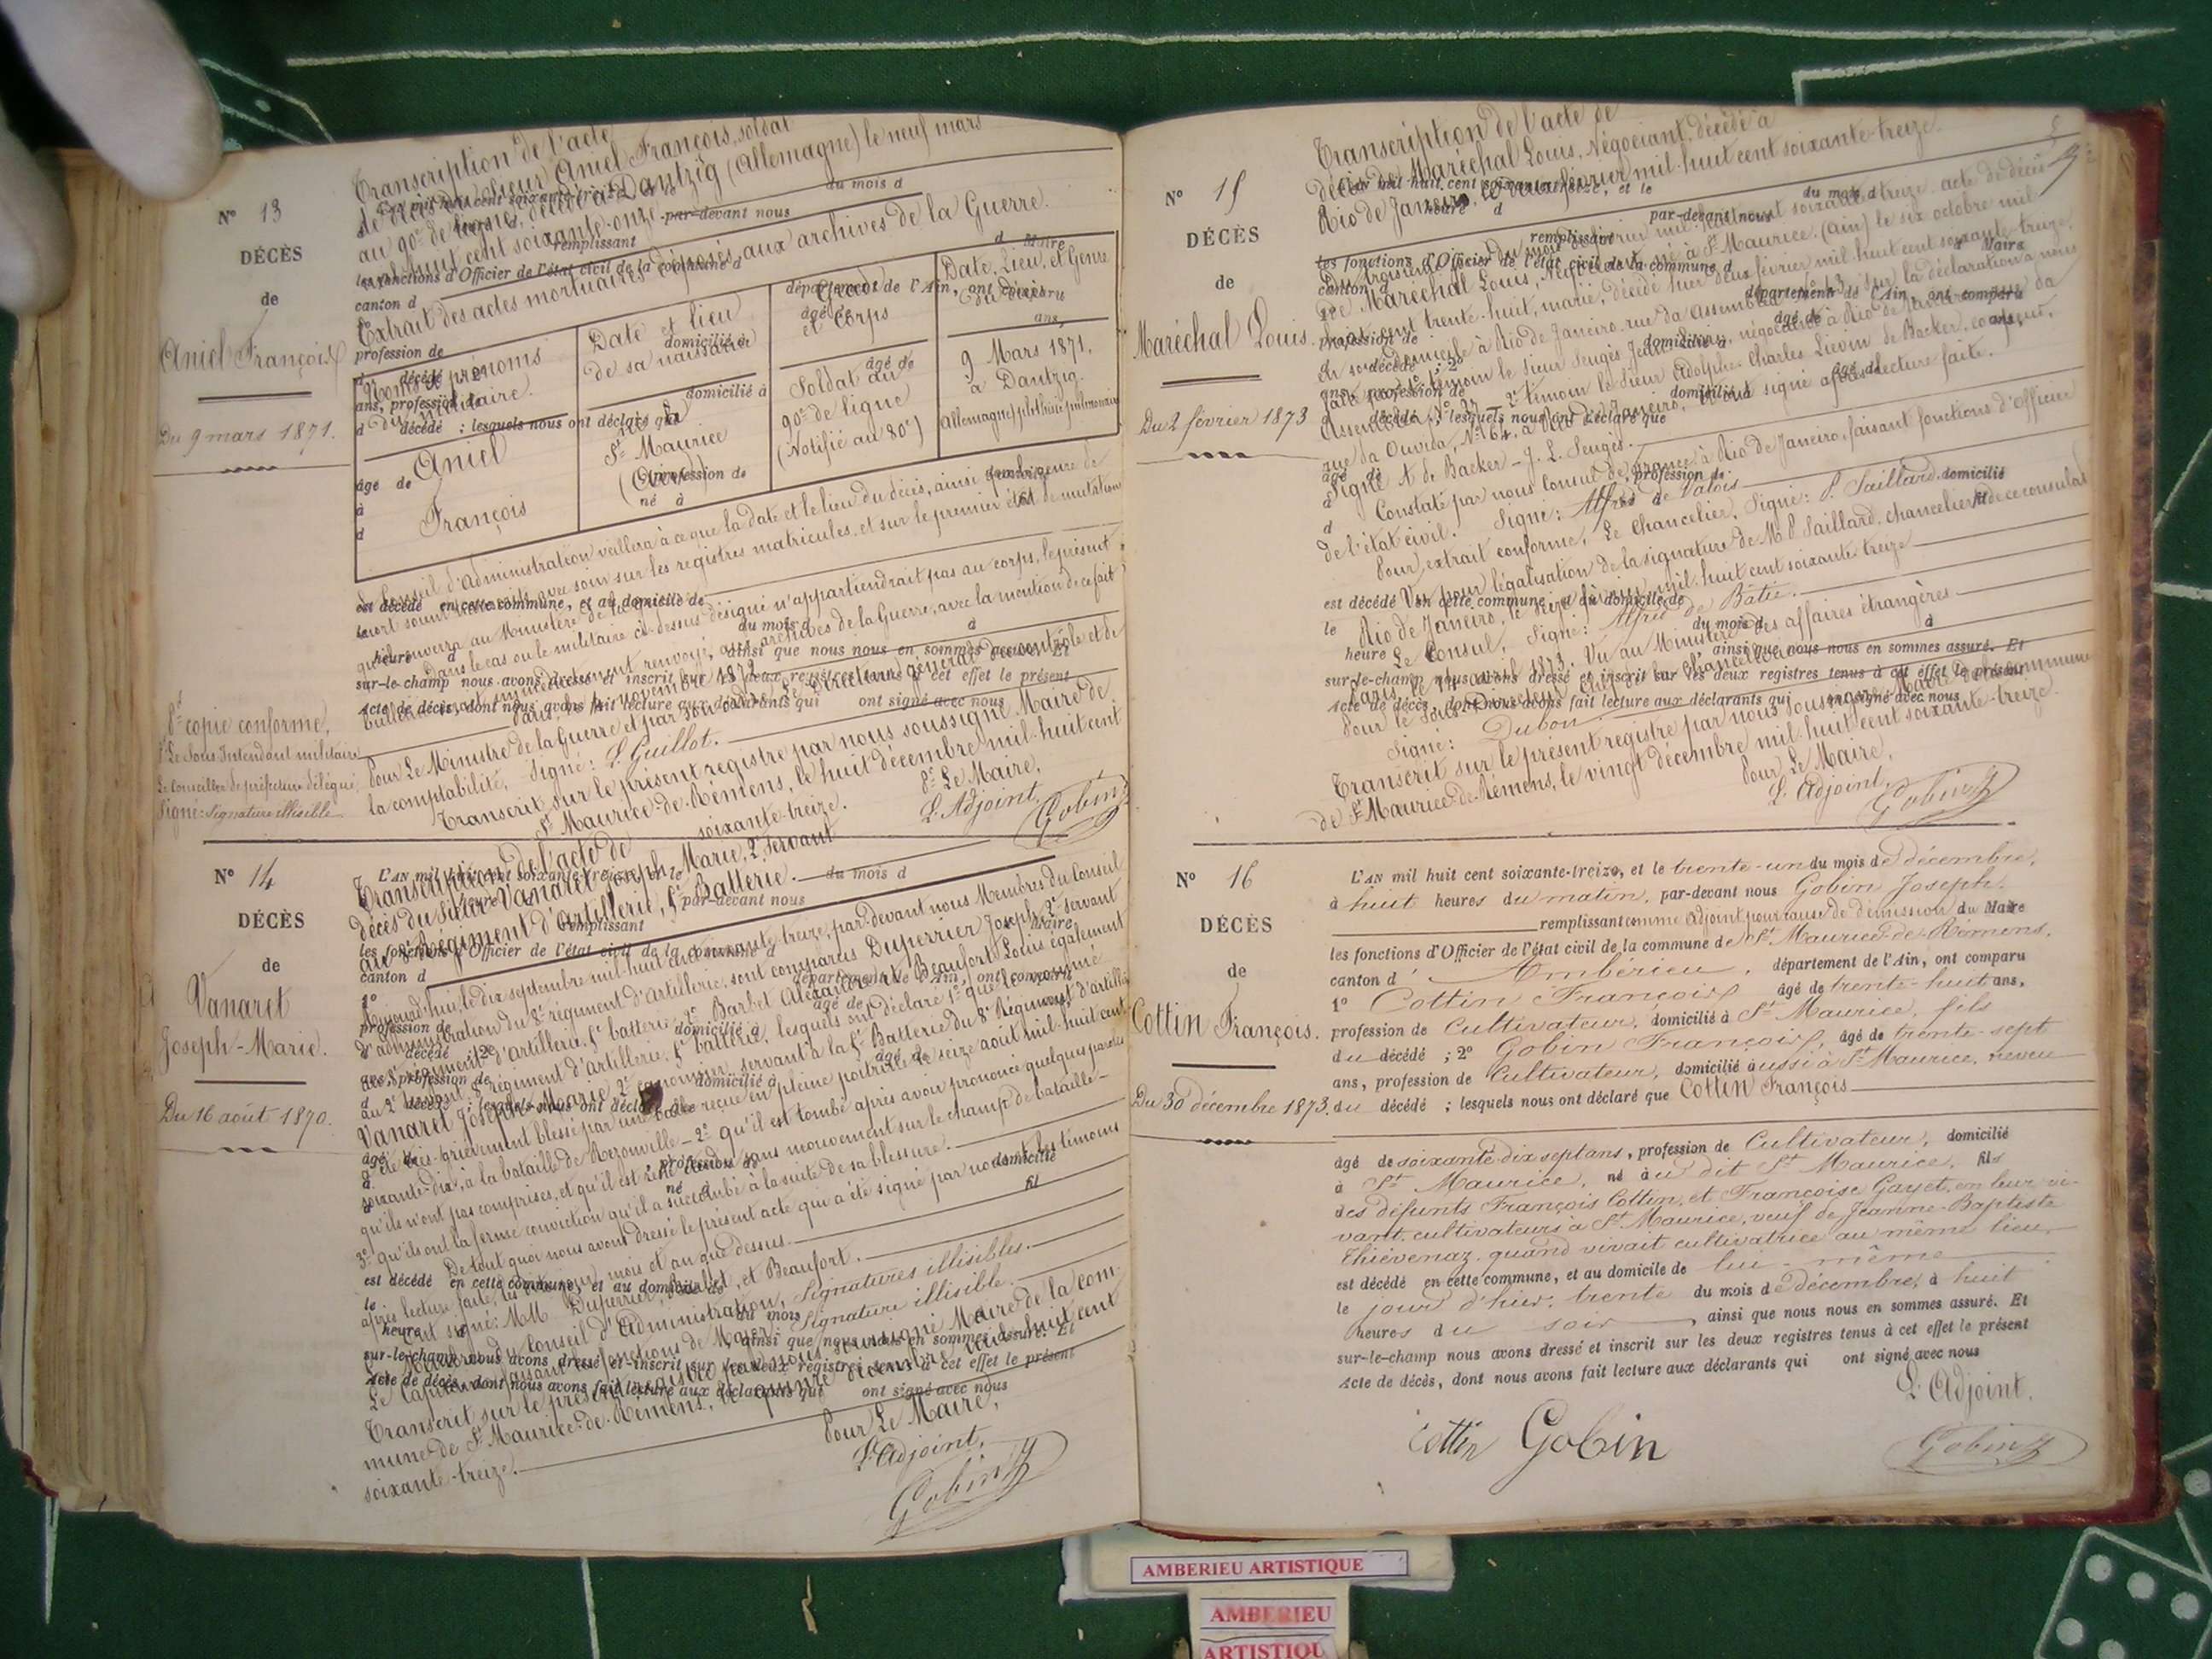 N° 13
DÉCÈS
de
Aniel François
Du 9 mars 1871.
Pr copie conforme,
Pr Le Sous Intendant militaire
Le Conseiller de préfecture délégué,
Signé: Signature illisible
Transcription de l'acte
de décès du Sieur Aniel François, soldat
au 90e de ligne, décédé à Dantzig (Allemagne) le neuf mars
mil huit cent soixante-onze.
Extrait des actes mortuaires déposés aux archives de la Guerre.
Noms et prénoms
du militaire.
Date et lieu
de sa naissance
Grade
et Corps
Date, Lieu, et Genre
du décès
Aniel
François
St Maurice
(Ain)
Soldat au
90e de ligne
(Notifié au 80e)
9 Mars 1871.
à Dantzig
(Allemagne) phthisie pulmonaire
Le Conseil d'administration veillera à ce que la date et le lieu du décès, ainsi que le genre de
mort soient mentionnés avec soin sur les registres matricules, et sur le premier état de mutation
qu'il enverra au Ministère de la Guerre.
Dans le cas où le militaire ci-dessus désigné n'appartiendrait pas au corps, le présent
bulletin serait immédiatement renvoyé, aux archives de la Guerre, avec la mention de ce fait
Pour Le Ministre de la Guerre et par son ordre, Le Directeur général du contrôle et de
la comptabilité, Signé: L. Guillot.
Transcrit sur le présent registre par nous soussigné Maire de
St Maurice-de-Rémens, le huit décembre mil-huit cent
soixante-treize.
Pr Le Maire,
L'Adjoint,
Gobin
N° 14
DÉCÈS
de
Vanaret
Joseph-Marie.
Du 16 août 1870.
Transcription de l'acte de
décès du Sieur Vanaret Joseph Marie, 2e servant
au 8e Régiment d'Artillerie, 5e Batterie.
Aujourd'hui, le dix septembre mil-huit cent soixante-treize, par-devant nous Membres du Conseil
d'administration du 8e régiment d'Artillerie, sont comparus Duperrier Joseph 2e servant
au 8e régiment d'artillerie, 5e batterie, Barbet Alexandre et Beaufort Louis également
au 8e régiment d'artillerie, 5e batterie, lesquels ont déclaré 1° que le nommé
Vanaret Joseph-Marie, 2e canonnier servant à la 5e Batterie du 8e Régiment d'artillerie
a été très grièvement blessé par une balle reçue en pleine poitrine le seize août mil-huit cent
soixante-dix, à la bataille de Rezonville - 2° qu'il est tombé après avoir prononcé quelques paroles
qu'ils n'ont pas comprises, et qu'il est resté étendu sans mouvement sur le champ de bataille -
3° Qu'ils ont la ferme conviction qu'il a succombé à la suite de sa blessure.
De tout quoi nous avons dressé le présent acte qui a été signé par nous et les témoins
après lecture faite, les jour, mois et an que dessus.
Ont signé: MM Duperrier, Barbet, et Beaufort.
Les Membres du Conseil d'Administration, Signatures illisibles.
Le Capitaine faisant fonctions de Major, Signature illisible.
Transcrit sur le présent registre par nous soussigné Maire de la com-
mune de St Maurice-de-Rémens, le quinze décembre mil-huit cent
soixante-treize.
Pour Le Maire,
L'Adjoint,
Gobin
N° 15
DÉCÈS
de
Maréchal Louis.
Du 2 février 1873
Transcription de l'acte de
décès de Maréchal Louis, Négociant, décédé à
Rio de Janeiro, le deux février mil-huit cent soixante-treize.
Du troisième jour du mois de février mil-huit cent soixante-treize, acte de décès
de Maréchal Louis, négociant, né à St Maurice (ain) le six octobre mil-
huit cent trente-huit, marié, décédé hier deux février mil huit cent soixante-treize,
en son domicile à Rio de Janeiro rue da Assembléa, N° 43, sur la déclaration à nous
faite par le 1er témoin le sieur Seugès Jean Louis, négociant à Rio de Janeiro rue da
Assembléa, N° 27 - 2e témoin le sieur Adolphe Charles Liévin de Backer, coiffeur,
rue da Ouvidor, N° 64, à Rio de Janeiro, qui ont signé après lecture faite.
Signé A. de Backer - J. L. Seugès.
Constaté par nous Consul de France à Rio de Janeiro, faisant fonctions d'officier
de l'état civil. Signé: Alfred de Valois
Pour extrait conforme, Le Chancelier, Signé: P. Saillard.
Vu pour légalisation de la signature de M. P. Saillard, chancelier de ce consulat
Rio de Janeiro, le seize février mil-huit cent soixante-treize
Le Consul, Signé: Alfred de Batie.
Paris, le 14 avril 1873. Vu au Ministère des affaires étrangères
Pour le Sous-Directeur chef de la Chancellerie
Signé: Dubois
Transcrit sur le présent registre par nous soussigné Maire de la commune
de St Maurice-de-Rémens, le vingt décembre mil huit cent soixante-treize.
Pour Le Maire,
L'Adjoint,
Gobin
N° 16
DÉCÈS
de
Cottin François.
Du 30 décembre 1873.
L'AN mil huit cent soixante-treize, et le trente-un du mois de décembre,
à huit heures du matin, par-devant nous Gobin Joseph
remplissant comme adjoint pour cause de démission du Maire
les fonctions d'Officier de l'état civil de la commune de St Maurice-de-Rémens,
canton d' Ambérieu, département de l'Ain, ont comparu
1° Cottin François âgé de trente-huit ans,
profession de Cultivateur, domicilié à St Maurice, fils
du décédé ; 2° Gobin François, âgé de trente-sept
ans, profession de Cultivateur, domicilié aussi à St Maurice, neveu
du décédé ; lesquels nous ont déclaré que Cottin François
âgé de soixante-dix sept ans, profession de Cultivateur, domicilié
à St Maurice, né au dit St Maurice, fils
des défunts François Cottin, et Françoise Gayet, en leur vi-
vant cultivateurs à St Maurice, veuf de Jeanne-Baptiste
Thiévenaz, quand vivait cultivatrice au même lieu
est décédé en cette commune, et au domicile de lui-même
le jour d'hier, trente du mois de décembre, à huit
heures du soir, ainsi que nous nous en sommes assuré. Et
sur-le-champ nous avons dressé et inscrit sur les deux registres tenus à cet effet le présent
Acte de décès, dont nous avons fait lecture aux déclarants qui ont signé avec nous
L'Adjoint.
Cottin Gobin
Gobin
AMBERIEU ARTISTIQUE
AMBERIEU
ARTISTIQU